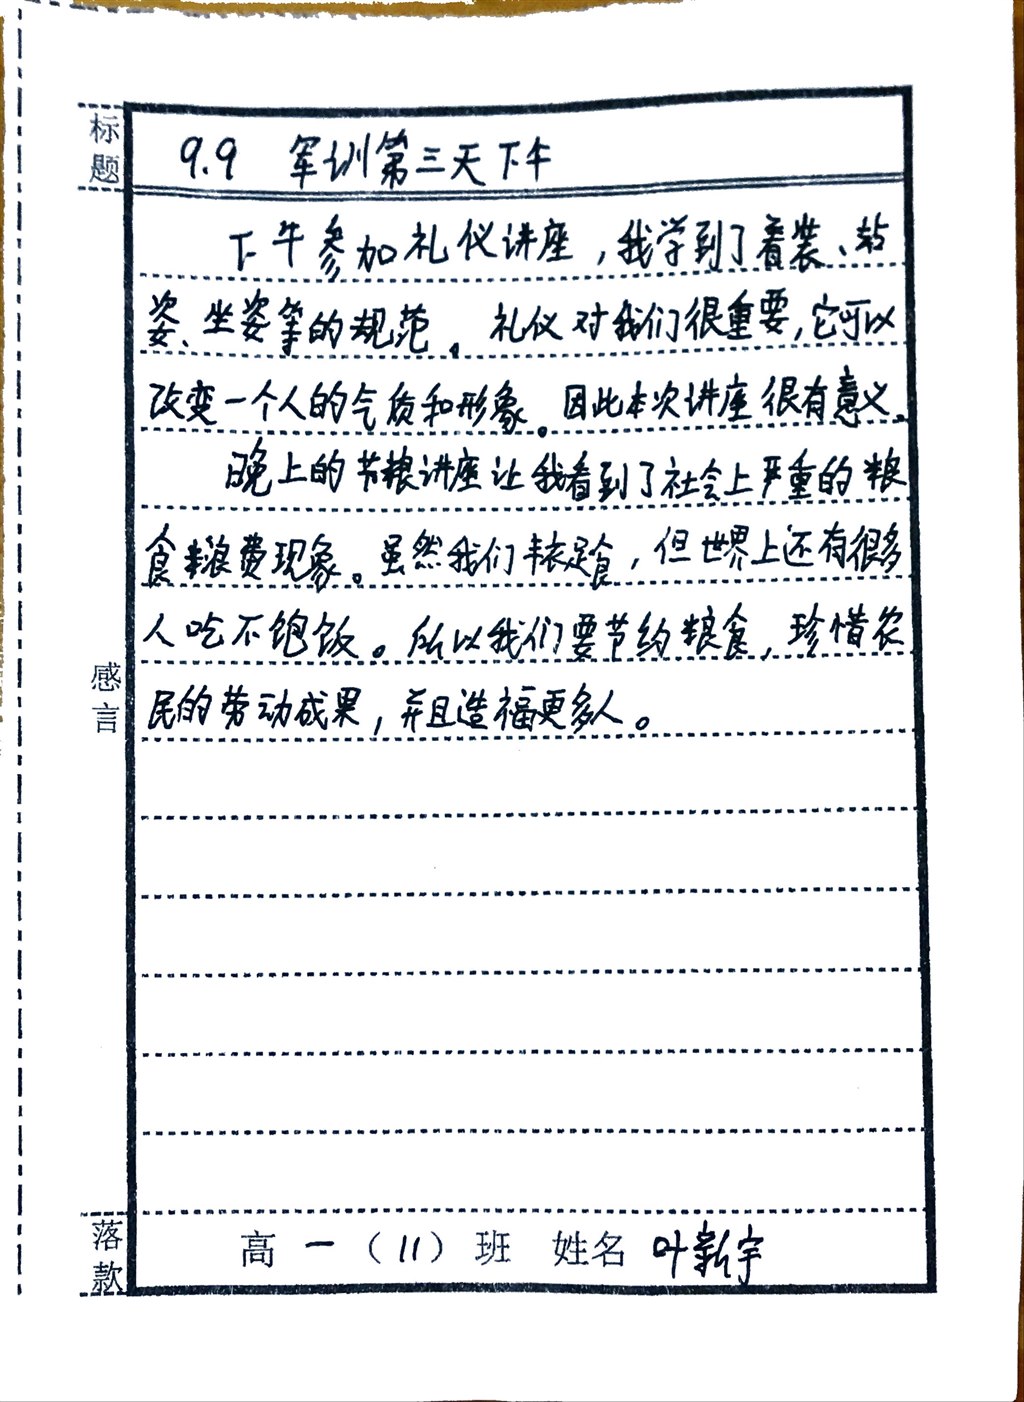 标题
9.9 军训第三天下午
下午参加礼仪讲座，我学到了着装、站
姿、坐姿等的规范。礼仪对我们很重要，它可以
改变一个人的气质和形象。因此本次讲座很有意义。
晚上的节粮讲座让我看到了社会上严重的粮
食浪费现象。虽然我们丰衣足食，但世界上还有很多
人吃不饱饭。所以我们要节约粮食，珍惜农
民的劳动成果，并且造福更多人。
感言
落款
高一（11）班 姓名 叶新宇